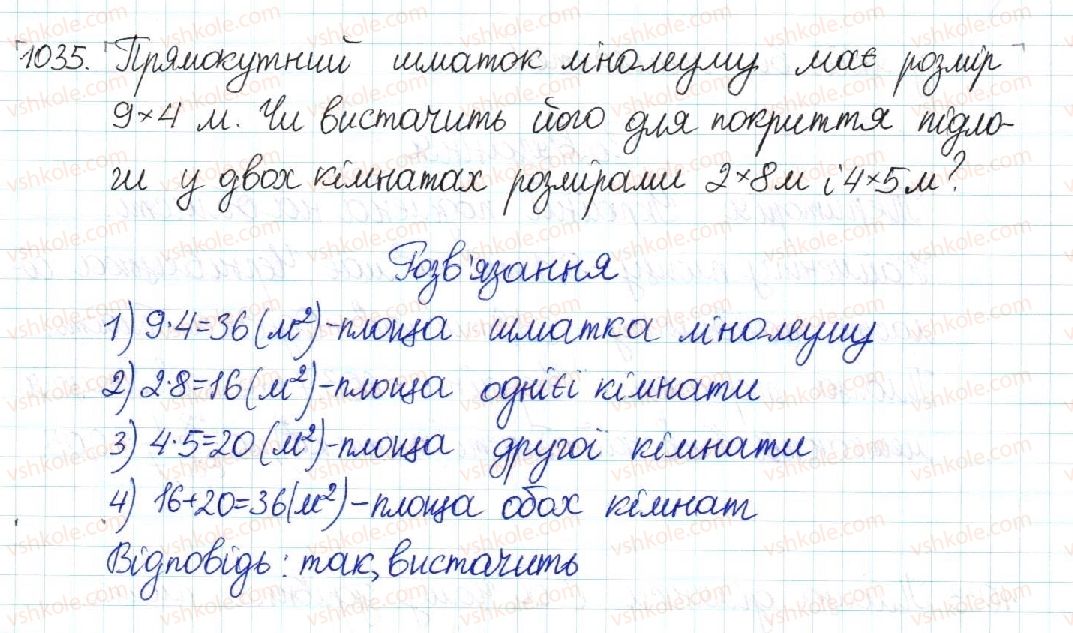 1035. Прямокутний шматок лінолеуму має розмір
9×4 м. Чи вистачить його для покриття підло-
ги у двох кімнатах розмірами 2×8м і 4×5м?
Розв'язання
1) 9·4=36(м²)-площа шматка лінолеуму
2) 2·8=16(м²)-площа однієї кімнати
3) 4·5=20(м²)-площа другої кімнати
4) 16+20=36(м²)-площа обох кімнат
Відповідь: так, вистачить